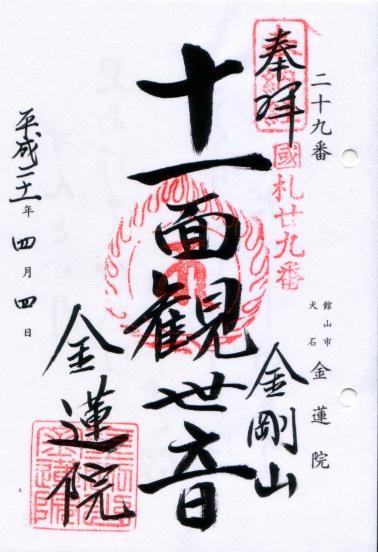 二十九番
館山市
犬石
金蓮院
奉拝
奉納経
國札廿九番
金剛山
十一面観世音
金蓮院
平成二十一年四月四日